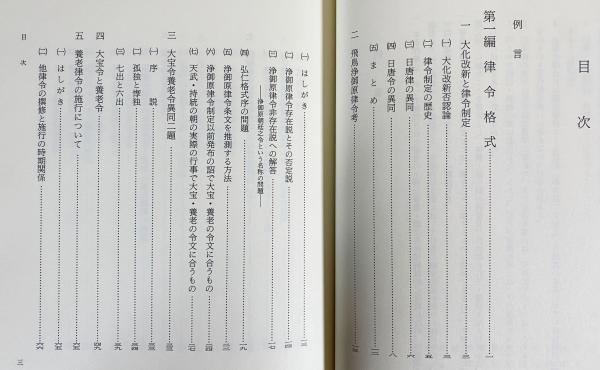 目次
例言
第一編 律令格式……一
一 大化改新と律令制定……三
㈠ 大化改新否認論……三
㈡ 律令制定の歴史……五
㈢ 日唐律の異同……六
㈣ 日唐令の異同……八
㈤ まとめ……一二
二 飛鳥浄御原律令考……一三
㈠ はしがき……一三
㈡ 浄御原律令存在説とその否定説……一四
㈢ 浄御原律令非存在説への解答……一七
――浄御原朝廷之令という名称の問題――
㈣ 弘仁格式序の問題……一九
㈤ 浄御原律令条文を推測する方法……二三
㈥ 浄御原律令制定以前発布の詔で大宝・養老の令文に合うもの……二四
㈦ 天武・持統の朝の実際の行事で大宝・養老の令文に合うもの……二七
三 大宝令養老令異同二題……三三
㈠ 序説……三三
㈡ 孤独と惸独……三九
㈢ 七出と六出……
四 大宝令と養老令……四九
五 養老律令の施行について……六五
㈠ はしがき……六五
㈡ 他律令の撰修と施行の時期関係……六六
目次
三